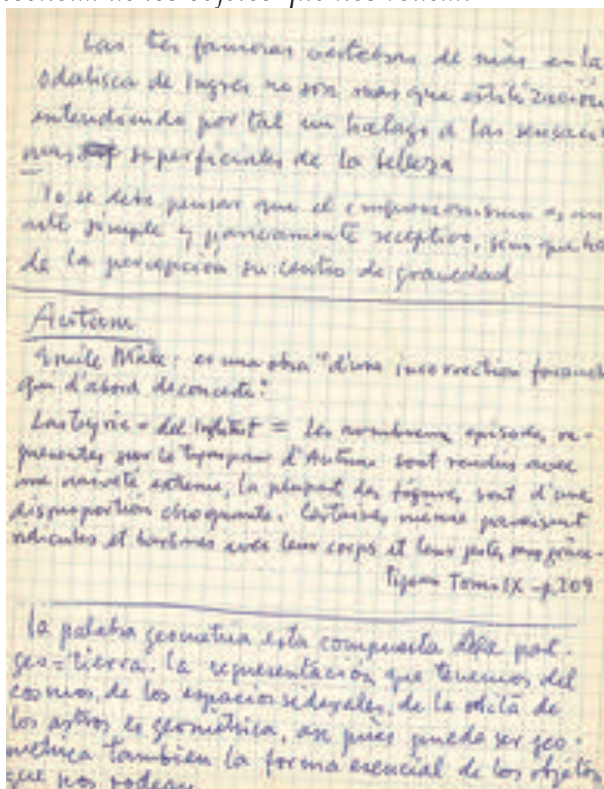 Las tres famosas vértebras de más en la
odalisca de Ingres no son mas que estilización
entendiendo por tal un halago a las
mas superficiales de la belleza
No se debe pensar que el impresionismo es un
arte simple y puramente receptivo, sino que
de la percepción su centro de gravedad
Autun
Emile Male: es una obra "d'une incorrection
qui d'abord déconcerte."
Lasteyrie = del = Les nombreux episodes re-
presentes sur le tympan d'Autun sont rendus avec
une naiveté extreme, la plupart des figures sont d'une
disproportion choquante. Certaines même paraissent
ridicules et avec leur corps et leur
Tomo IX - p. 209
la palabra geometria esta compuesta de la pal.
geo = tierra. La representación que tenemos del
cosmos, de los espacios siderales, de la de
los astros es geométrica, asi pues puede ser geo-
metrica tambien la forma esencial de los objetos
que nos rodean